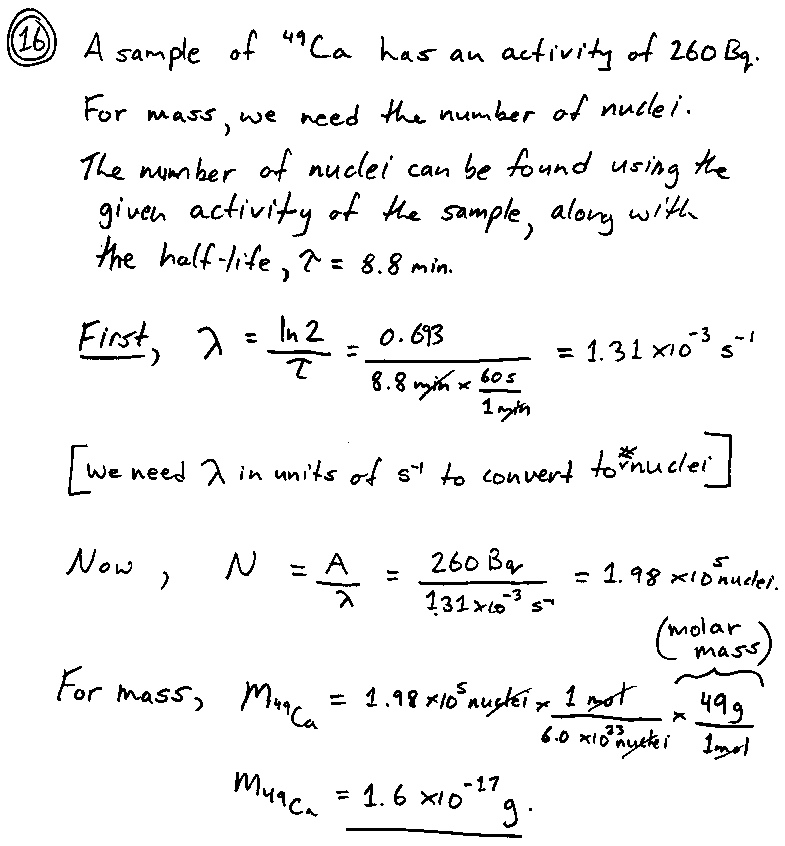 16 A sample of ⁴⁹Ca has an activity of 260 Bq.
For mass, we need the number of nuclei.
The number of nuclei can be found using the
given activity of the sample, along with
the half-life, τ = 8.8 min.
First, λ = ln 2 / τ = 0.693 / (8.8 min × 60 s / 1 min) = 1.31 ×10⁻³ s⁻¹
[we need λ in units of s⁻¹ to convert to # nuclei]
Now, N = A / λ = 260 Bq / 1.31 ×10⁻³ s⁻¹ = 1.98 ×10⁵ nuclei.
(molar mass)
For mass, M⁴⁹Ca = 1.98 ×10⁵ nuclei × 1 mol / 6.0 ×10²³ nuclei × 49g / 1mol
M⁴⁹Ca = 1.6 ×10⁻¹⁷ g.